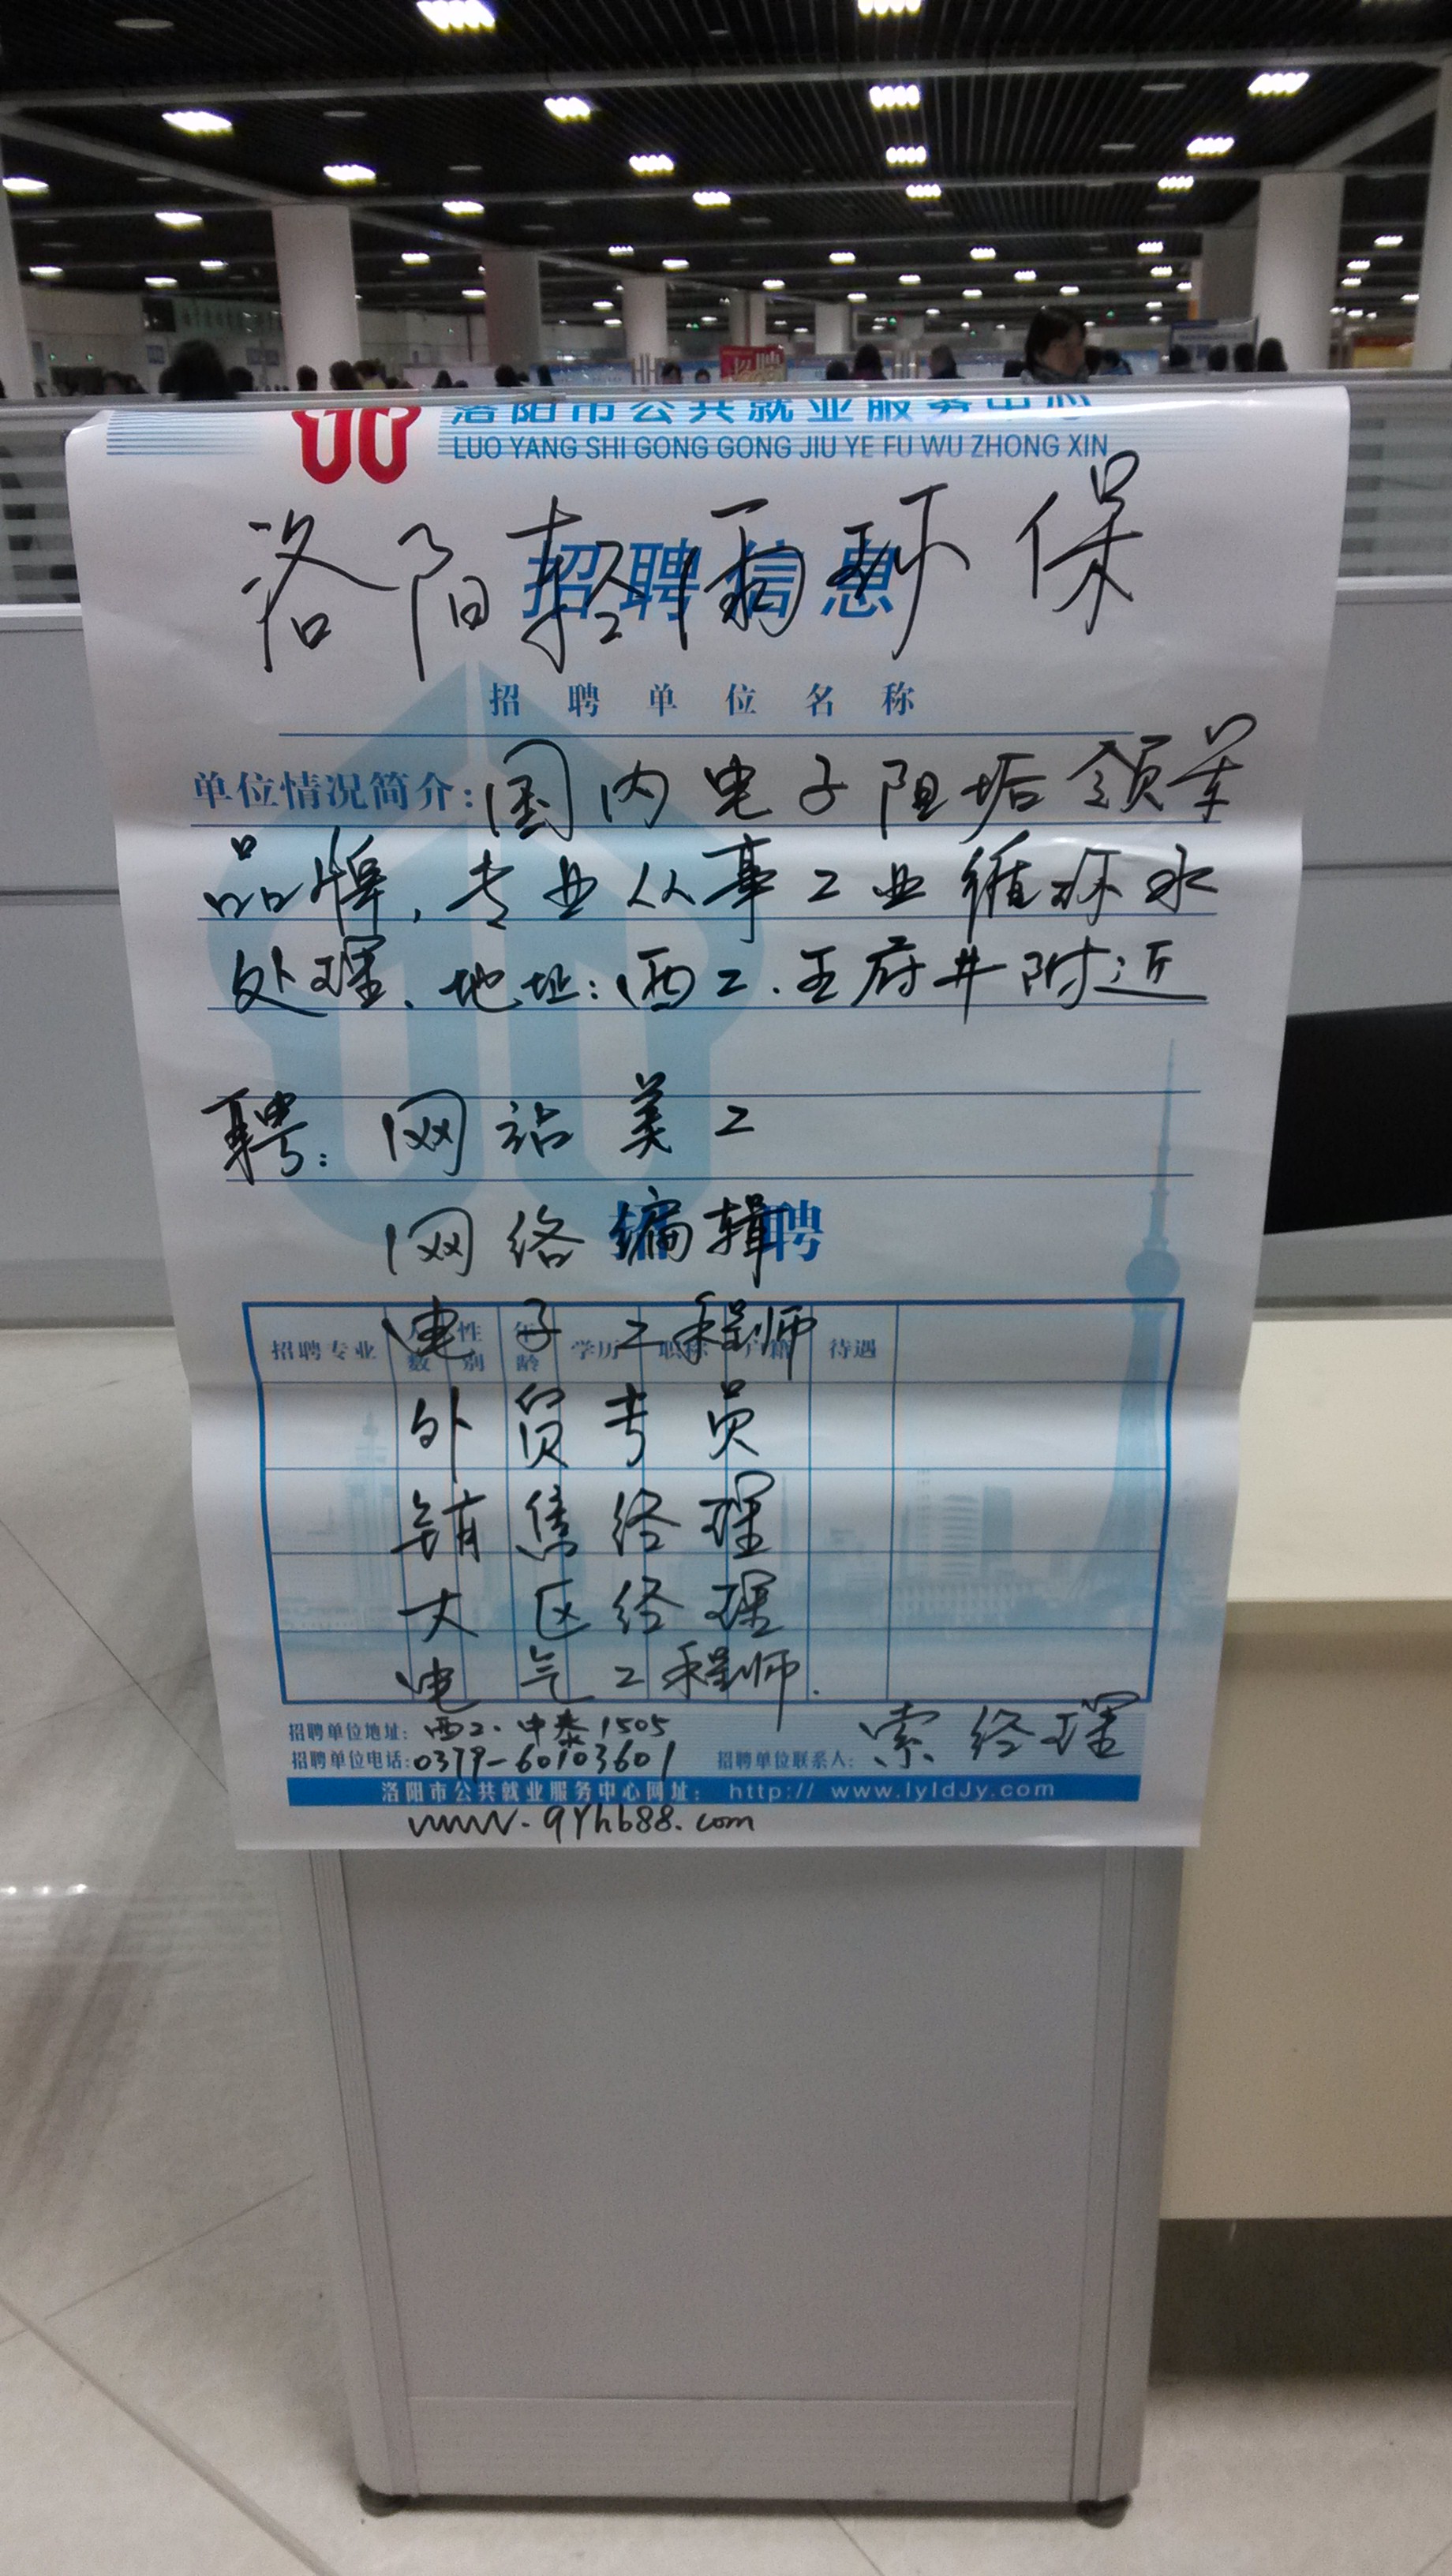 洛阳市公共就业服务中心
LUO YANG SHI GONG GONG JIU YE FU WU ZHONG XIN
招聘信息
洛阳轻雨环保
招聘单位名称
单位情况简介:国内电子阻垢领军
品牌,专业从事工业循环水
处理、地址:西工.王府井附近
聘:网站美工
招聘
网络编辑
招聘专业 人数 性别 年龄 学历 职称 户籍 待遇
电子工程师
外贸专员
销售经理
大区经理
电气工程师.
招聘单位地址:西工.中泰1505
招聘单位电话:0379-60103601 招聘单位联系人:索经理
洛阳市公共就业服务中心网址: http:// www.lyldJy.com
www.qyhb88.com
招聘